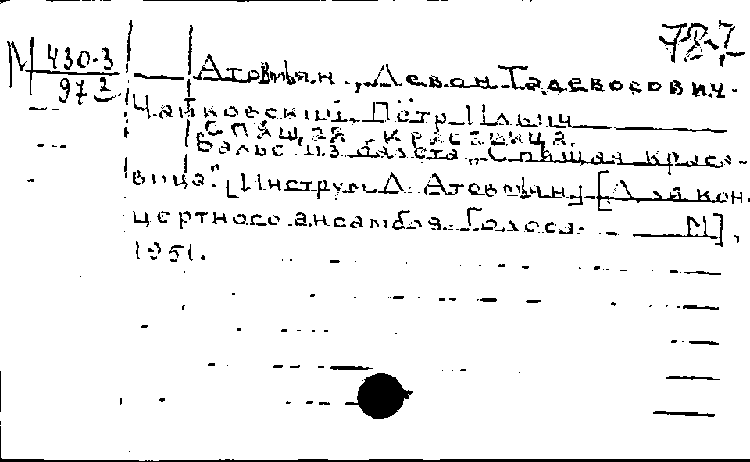 78-7
М 430-3
97 2
Атовмьян, Леван Тадевосович.
Чайковский, Пётр Ильич
"Спящая красавица.
Вальс из балета "Спящая краса-
вица". [Инструм. Л. Атовмьян] [Для кон-
цертного ансамбля. Голоса. М],
1951.